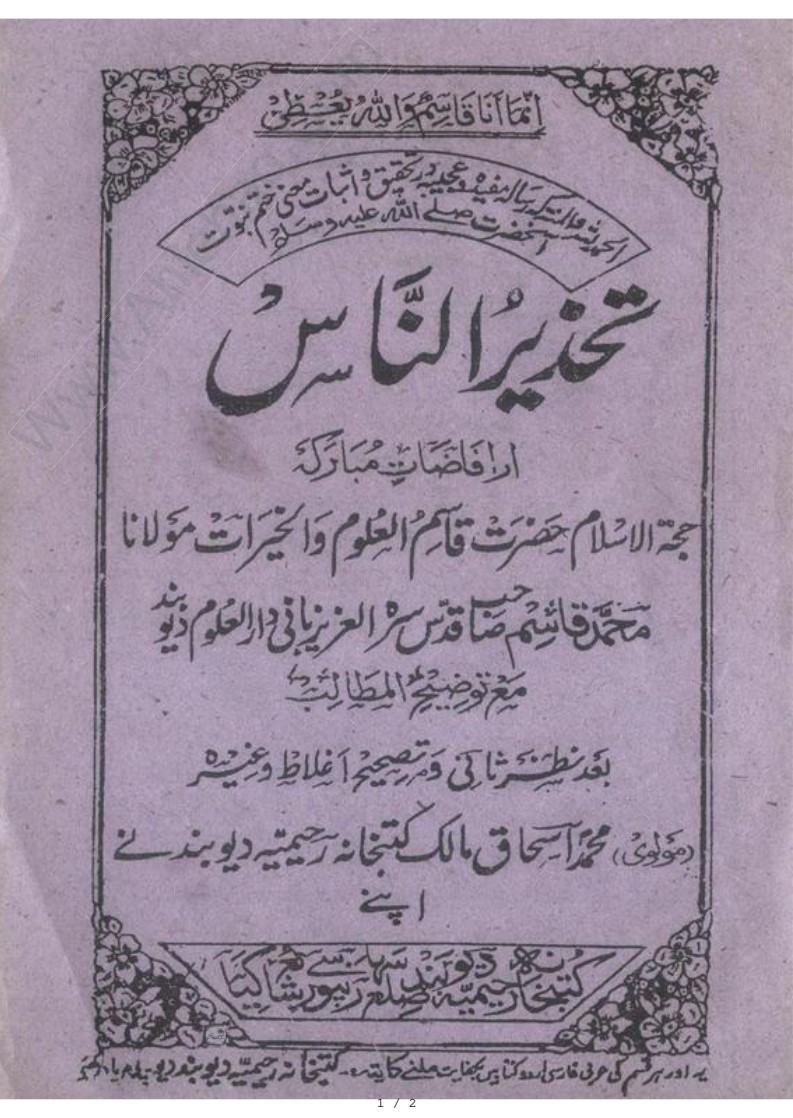 اِنَّمَا اَنَا قَاسِمٌ وَاللّٰہُ یُعْطِیْ
الحمد للہ والمنۃ کہ رسالہ مفیدہ و عجیبہ در تحقیق و اثبات معنی ختم نبوّت
آنحضرت صلے اللہ علیہ وسلم
تحذیرُ النَّاسْ
از افَاضَاتِ مُبَارَکہ
حجۃ الاسْلام حَضرَت قَاسِمُ العُلُوم وَالخَیرَات مَولانا
مَحمَّد قَاسِم صَاحب قدّس سرّہُ العزیز بانی دارالعلُوم دیوبند
مَعَ توضِیحُ المطَالِبْ
بعد نظَر ثانی وَ تصحِیح اَغلاط وغیرہ
(مولوی) محمّد اسحاق مالک کتبخانہ رحیمیّہ دیوبند نے
اپنے
کتبخانہ رحیمیّہ دیوبند ضلع سہارنپور سے شائع کیا
یہ اور ہر قسم کی عربی فارسی اردو کتابیں بکفایت ملنے کا پتہ:۔ کتبخانہ رحیمیّہ دیوبند
1 / 2